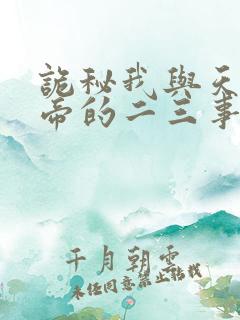 詭秘我與天
帝的二三事
千月朝雲
未經同意禁止轉載